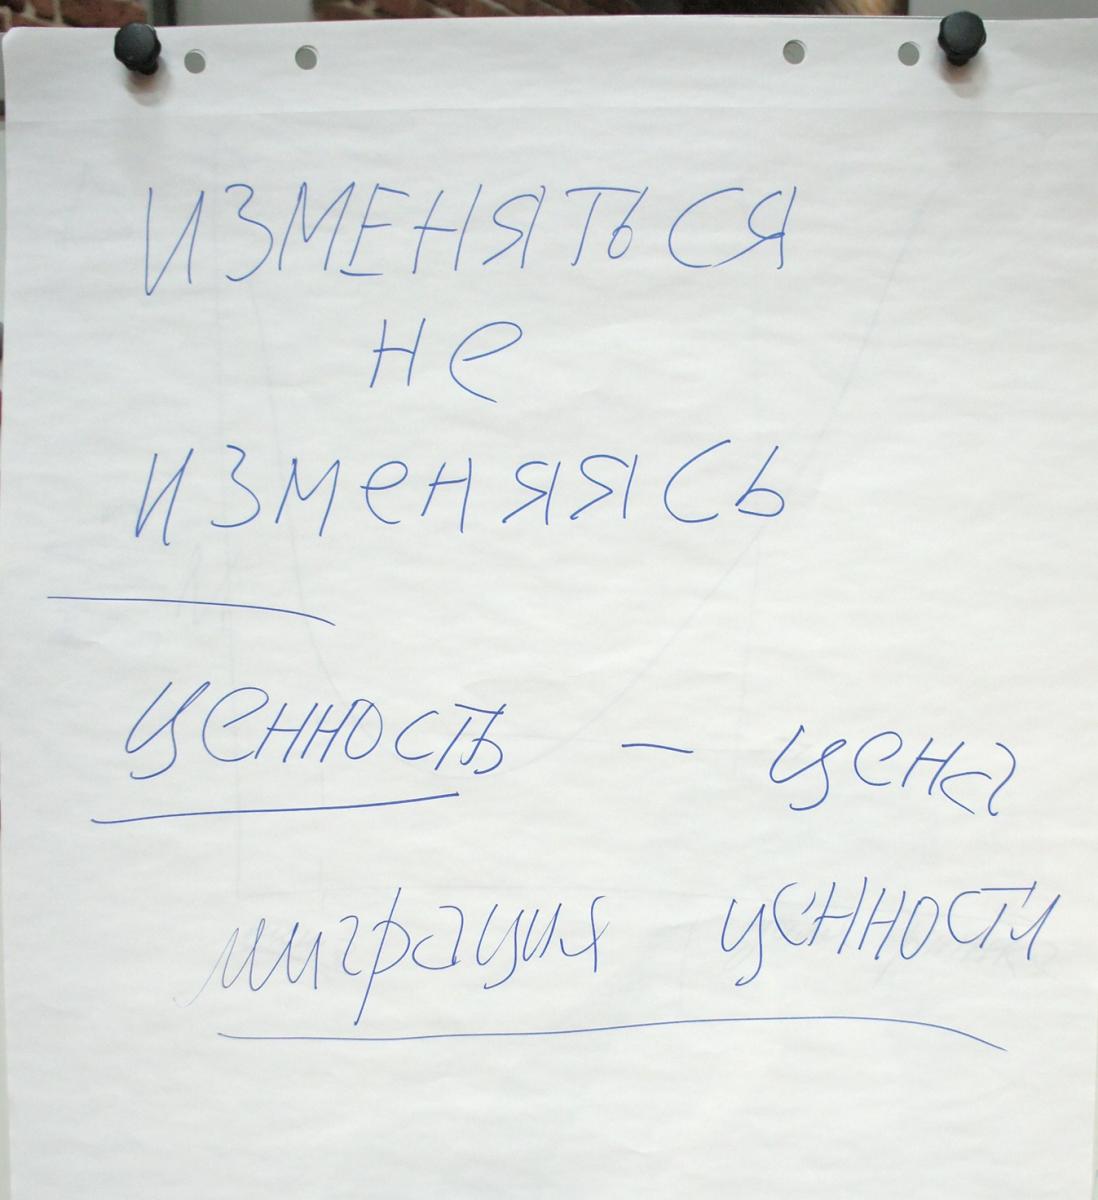 ИЗМЕНЯТЬСЯ
не
изменяясь
ценность – цена
миграция ценности